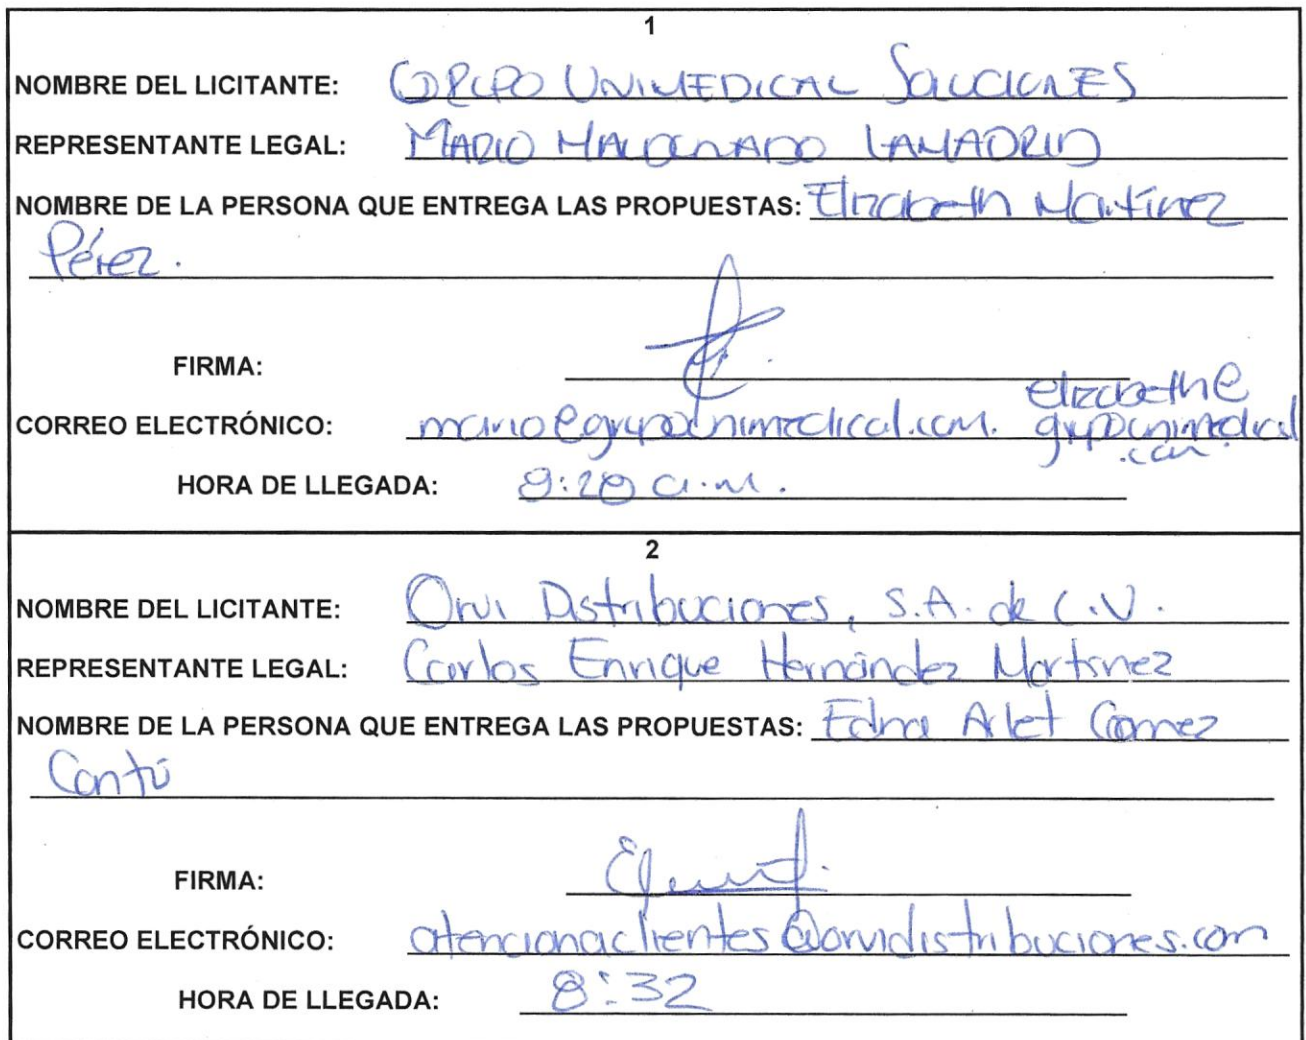 1
NOMBRE DEL LICITANTE: GRUPO UNIMEDICAL SOLUCIONES
REPRESENTANTE LEGAL: MARIO MALDONADO LAMADRID
NOMBRE DE LA PERSONA QUE ENTREGA LAS PROPUESTAS: Elizabeth Martínez
Pérez.
FIRMA:
CORREO ELECTRÓNICO: mario@grupounimedical.com. elizabeth@
grupounimedical
.com
HORA DE LLEGADA: a.m.
2
NOMBRE DEL LICITANTE: Orvi Distribuciones, S.A. de C.V.
REPRESENTANTE LEGAL: Carlos Enrique Hernández Martínez
NOMBRE DE LA PERSONA QUE ENTREGA LAS PROPUESTAS: Edna Arlet Gomez
Cantú
FIRMA:
CORREO ELECTRÓNICO: atencionaclientes@orvidistribuciones.com
HORA DE LLEGADA: 8:32